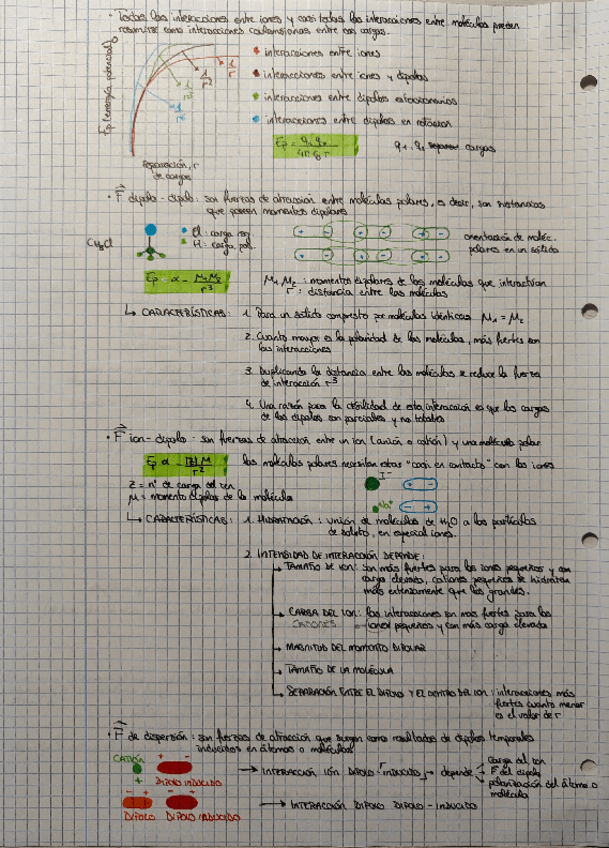 · Todas las interacciones entre iones y casi todas las interacciones entre moléculas pueden
resumirse como interacciones coulombianas entre sus cargas.
Ep (energía potencial)
0
1/r
1/r²
1/r³
1/r⁶
Separación, r
de cargas
• interacciones entre iones
• interacciones entre iones y dipolos
• interacciones entre dipolos estacionarios
• interacciones entre dipolos en rotación
Ep = q₁ q₂ / 4π ε₀ r
q₁, q₂ cargas
· F dipolo - dipolo: son fuerzas de atracción entre moléculas polares, es decir, son sustancias
que poseen momentos dipolares
CH₃Cl
• Cl: carga neg.
• H: carga pos.
orientación de moléc.
polares en un sólido
Ep α - μ₁μ₂ / r³
μ₁ μ₂ : momentos dipolares de las moléculas que interactúan
r : distancia entre las moléculas
↳ CARACTERÍSTICAS: 1. Para un sólido compuesto por moléculas idénticas μ₁ = μ₂
2. Cuanto mayor es la polaridad de las moléculas, más fuertes son
las interacciones
3. Duplicando la distancia entre las moléculas se reduce la fuerza
de interacción r³
4. Una razón para la debilidad de esta interacción es que las cargas
de los dipolos son parciales y no totales
· F ion - dipolo: son fuerzas de atracción entre un ion (anión o catión) y una molécula polar
Ep α - |z| μ / r²
las moléculas polares necesitan estar "casi en contacto" con los iones
z = nº de carga del ion
μ = momento dipolar de la molécula
I⁻
+ -
Na⁺
- +
↳ CARACTERÍSTICAS: 1. HIDRATACIÓN: unión de moléculas de H₂O a las partículas
de soluto, en especial iones.
2. INTENSIDAD DE INTERACCIÓN DEPENDE:
→ TAMAÑO DE ION: son más fuertes para los iones pequeños y con
carga elevada, cationes pequeños se hidratan
más extensamente que los grandes.
→ CARGA DEL ION: las interacciones son más fuertes para los
CATIONES pequeños y con más carga elevada
→ MAGNITUD DEL MOMENTO DIPOLAR
→ TAMAÑO DE LA MOLÉCULA
→ SEPARACIÓN ENTRE EL DIPOLO Y EL CENTRO DEL ION: interacciones más
fuertes cuanto menor
es el valor de r
· F de dispersión: son fuerzas de atracción que surgen como resultados de dipolos temporales
inducidos en átomos o moléculas
CATIÓN
+
+ -
DIPOLO INDUCIDO
→ INTERACCIÓN ION DIPOLO - INDUCIDO → depende
carga del ion
F del dipolo
polarización del átomo o
molécula
- + - +
DIPOLO DIPOLO INDUCIDO
→ INTERACCIÓN DIPOLO DIPOLO - INDUCIDO